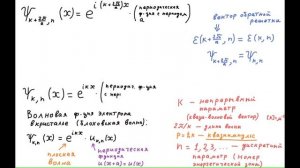 ψ_{k+2π/a, n}(x) = e^{i(k+2π/a)x} · (периодическая ф-ция с периодом a)
вектор обратной решетки
ε(k+2π/a, n) = ε(k, n)
ψ_{k+2π/a, n} = ψ_{k, n}
ψ_{k,n}(x) = e^{ikx} · (периодич. ф-ция с пер.
Волновая ф-ция электрона
в кристалле (блоховская волна):
ψ_{k,n}(x) = e^{ikx} · u_{k,n}(x)
плоская волна
периодическая функция
u(x+a) = u(x)
k – непрерывный параметр
(квази-волновой вектор)
2π/k – длина волны
p = ħk – квазиимпульс
n = 1, 2, 3, ... – дискретный
параметр (номер
энергетической зоны)